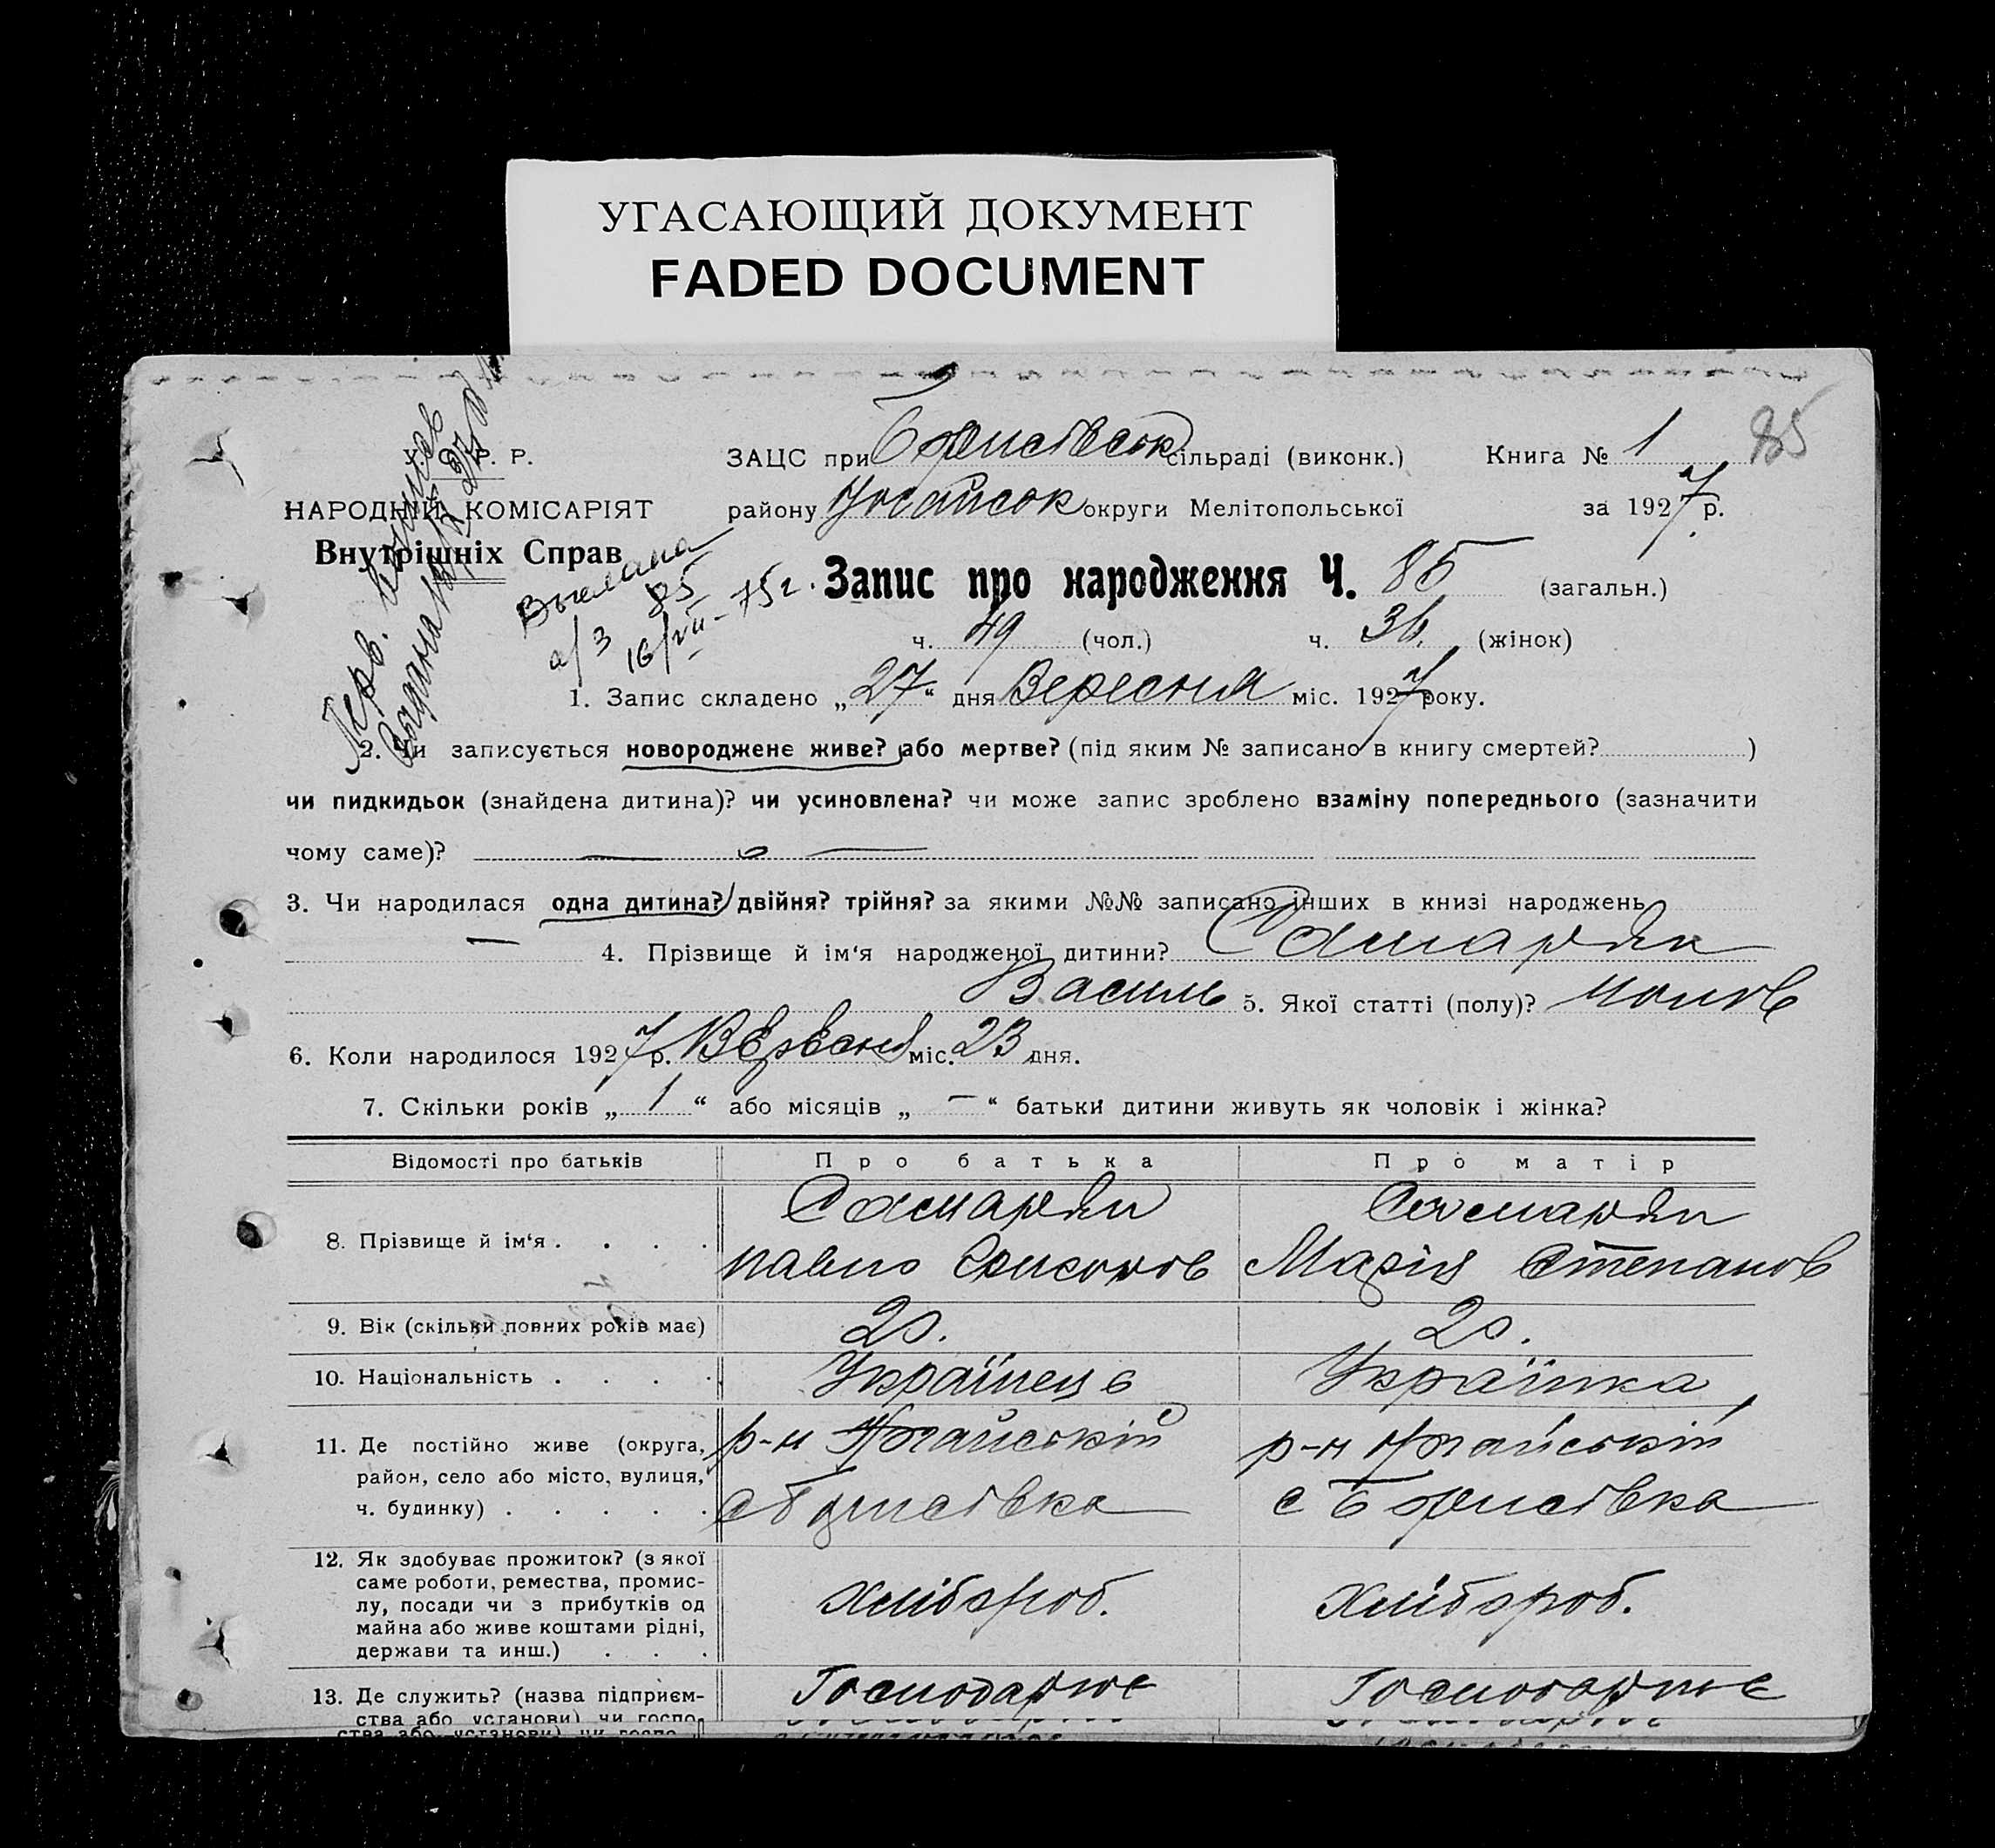 УГАСАЮЩИЙ ДОКУМЕНТ
FADED DOCUMENT
У. С. Р. Р.
НАРОДНІЙ КОМІСАРІЯТ
Внутрішніх Справ
ЗАЦС при Борисівськ сільраді (виконк.) Книга № 1 85
району округи Мелітопольської за 1927 р.
85
а/з 16/VII-75г.
Запис про народження Ч. 85 (загальн.)
ч. 49 (чол.) ч. 36. (жінок)
1. Запис складено „27“ дня Вересня міс. 1927 року.
2. Чи записується новороджене живе? або мертве? (під яким № записано в книгу смертей? )
чи пидкидьок (знайдена дитина)? чи усиновлена? чи може запис зроблено взаміну попереднього (зазначити
чому саме)?
3. Чи народилася одна дитина? двійня? трійня? за якими №№ записано інших в книзі народжень
— 4. Прізвище й ім‘я народженої дитини? Самардак
Василь 5. Якої статті (полу)? чолов
6. Коли народилося 1927 р. міс. 23 дня.
7. Скільки років „1“ або місяців „—“ батьки дитини живуть як чоловік і жінка?
Відомості про батьків Про батька Про матір
8. Прізвище й ім‘я . . . .
Павло Марія Степанов
9. Вік (скільки повних років має) 20. 20.
10. Національність . . . . Українець Українка
11. Де постійно живе (округа, район, село або місто, вулиця, ч. будинку) . . . . .
р-н р-н
с Борисівка с Борисівка
12. Як здобуває прожиток? (з якої
саме роботи, ремества, промис-
лу, посади чи з прибутків од
майна або живе коштами рідні,
держави та инш.) . . .
Хлібороб. Хлібороб.
13. Де служить? (назва підприєм-
ства або установи) чи госпо-
Господарює Господарює
ства або установи) чи госпо-